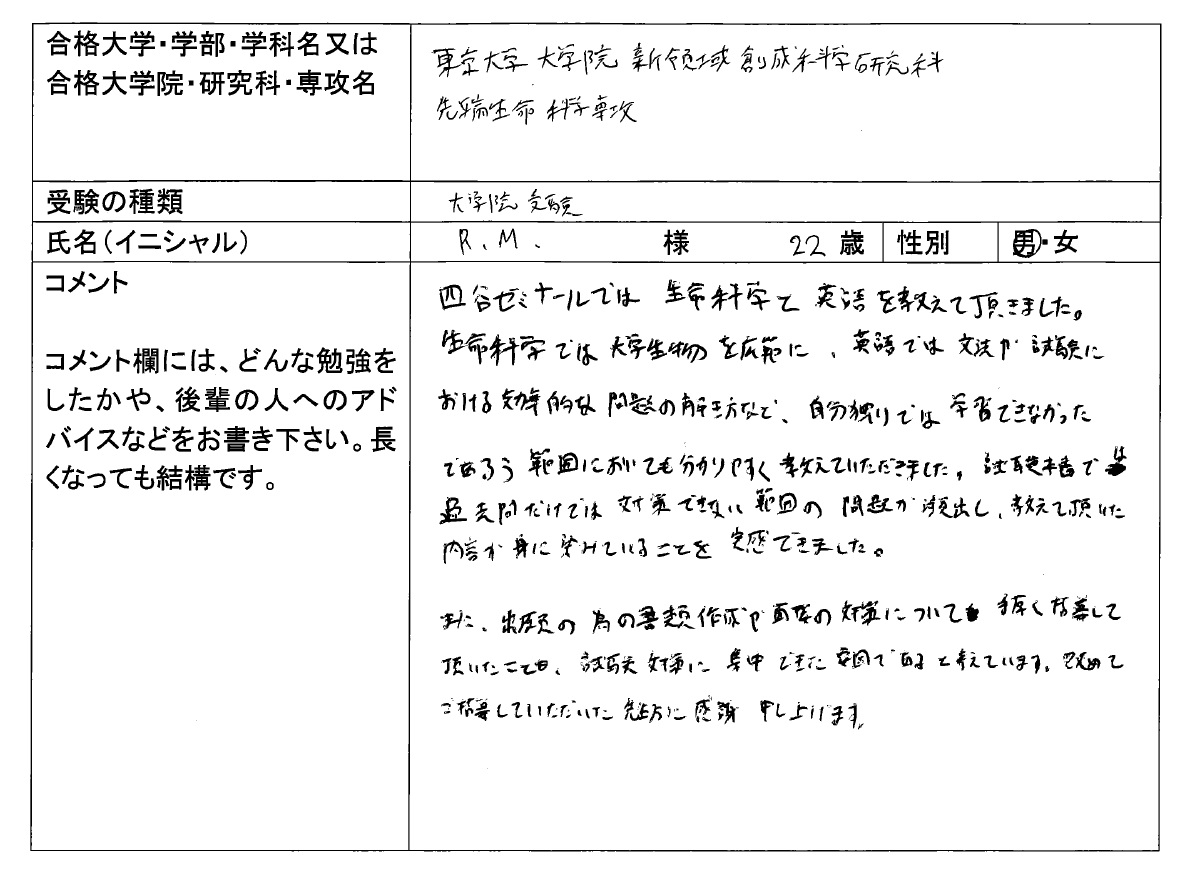 合格大学・学部・学科名又は
合格大学院・研究科・専攻名
東京大学 大学院 新領域創成科学研究科
先端生命科学専攻
受験の種類
大学院受験
氏名(イニシャル)
R.M. 様 22歳 性別 男・女
コメント
コメント欄には、どんな勉強を
したかや、後輩の人へのアド
バイスなどをお書き下さい。長
くなっても結構です。
四谷ゼミナールでは 生命科学と 英語を教えて頂きました。
生命科学では大学生物を広範に、英語では文法や試験に
おける効率的な問題の解き方など、自分独りでは学習できなかった
であろう範囲においても分かりやすく教えていただきました。試験本番では
過去問だけでは対策できない範囲の問題が頻出し、教えて頂いた
内容が身に染みていることを実感できました。
また、出願の為の書類作成や面接の対策についても手厚く指導して
頂いたことも、試験対策に集中できた要因であると考えています。改めて
ご指導していただいた先生方に感謝申し上げます。